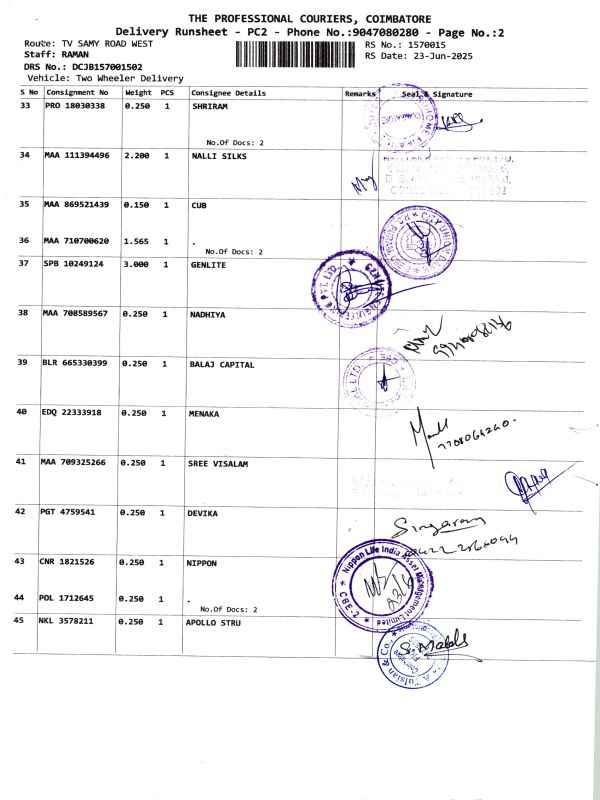 THE PROFESSIONAL COURIERS, COIMBATORE
Delivery Runsheet - PC2 - Phone No.:9047080280 - Page No.:2
Route: TV SAMY ROAD WEST
RS No.: 1570015
Staff: RAMAN
RS Date: 23-Jun-2025
DRS No.: DCJB157001502
Vehicle: Two Wheeler Delivery
S No Consignment No Weight PCS Consignee Details Remarks Seal & Signature
33 PRO 18030338 0.250 1 SHRIRAM
No.Of Docs: 2
34 MAA 111394496 2.200 1 NALLI SILKS
35 MAA 869521439 0.150 1 CUB
36 MAA 710700620 1.565 1 .
No.Of Docs: 2
37 SPB 10249124 3.000 1 GENLITE
38 MAA 708589567 0.250 1 NADHIYA
39 BLR 665330399 0.250 1 BALAJ CAPITAL
40 EDQ 22333918 0.250 1 MENAKA
7708064260.
41 MAA 709325266 0.250 1 SREE VISALAM
42 PGT 4759541 0.250 1 DEVIKA
Singaram
43 CNR 1821526 0.250 1 NIPPON
Nippon Life India Asset Management Limited
CBE-2
44 POL 1712645 1 0.250 1 .
No.Of Docs: 2
45 NKL 3578211 0.250 1 APOLLO STRU
S. Malols